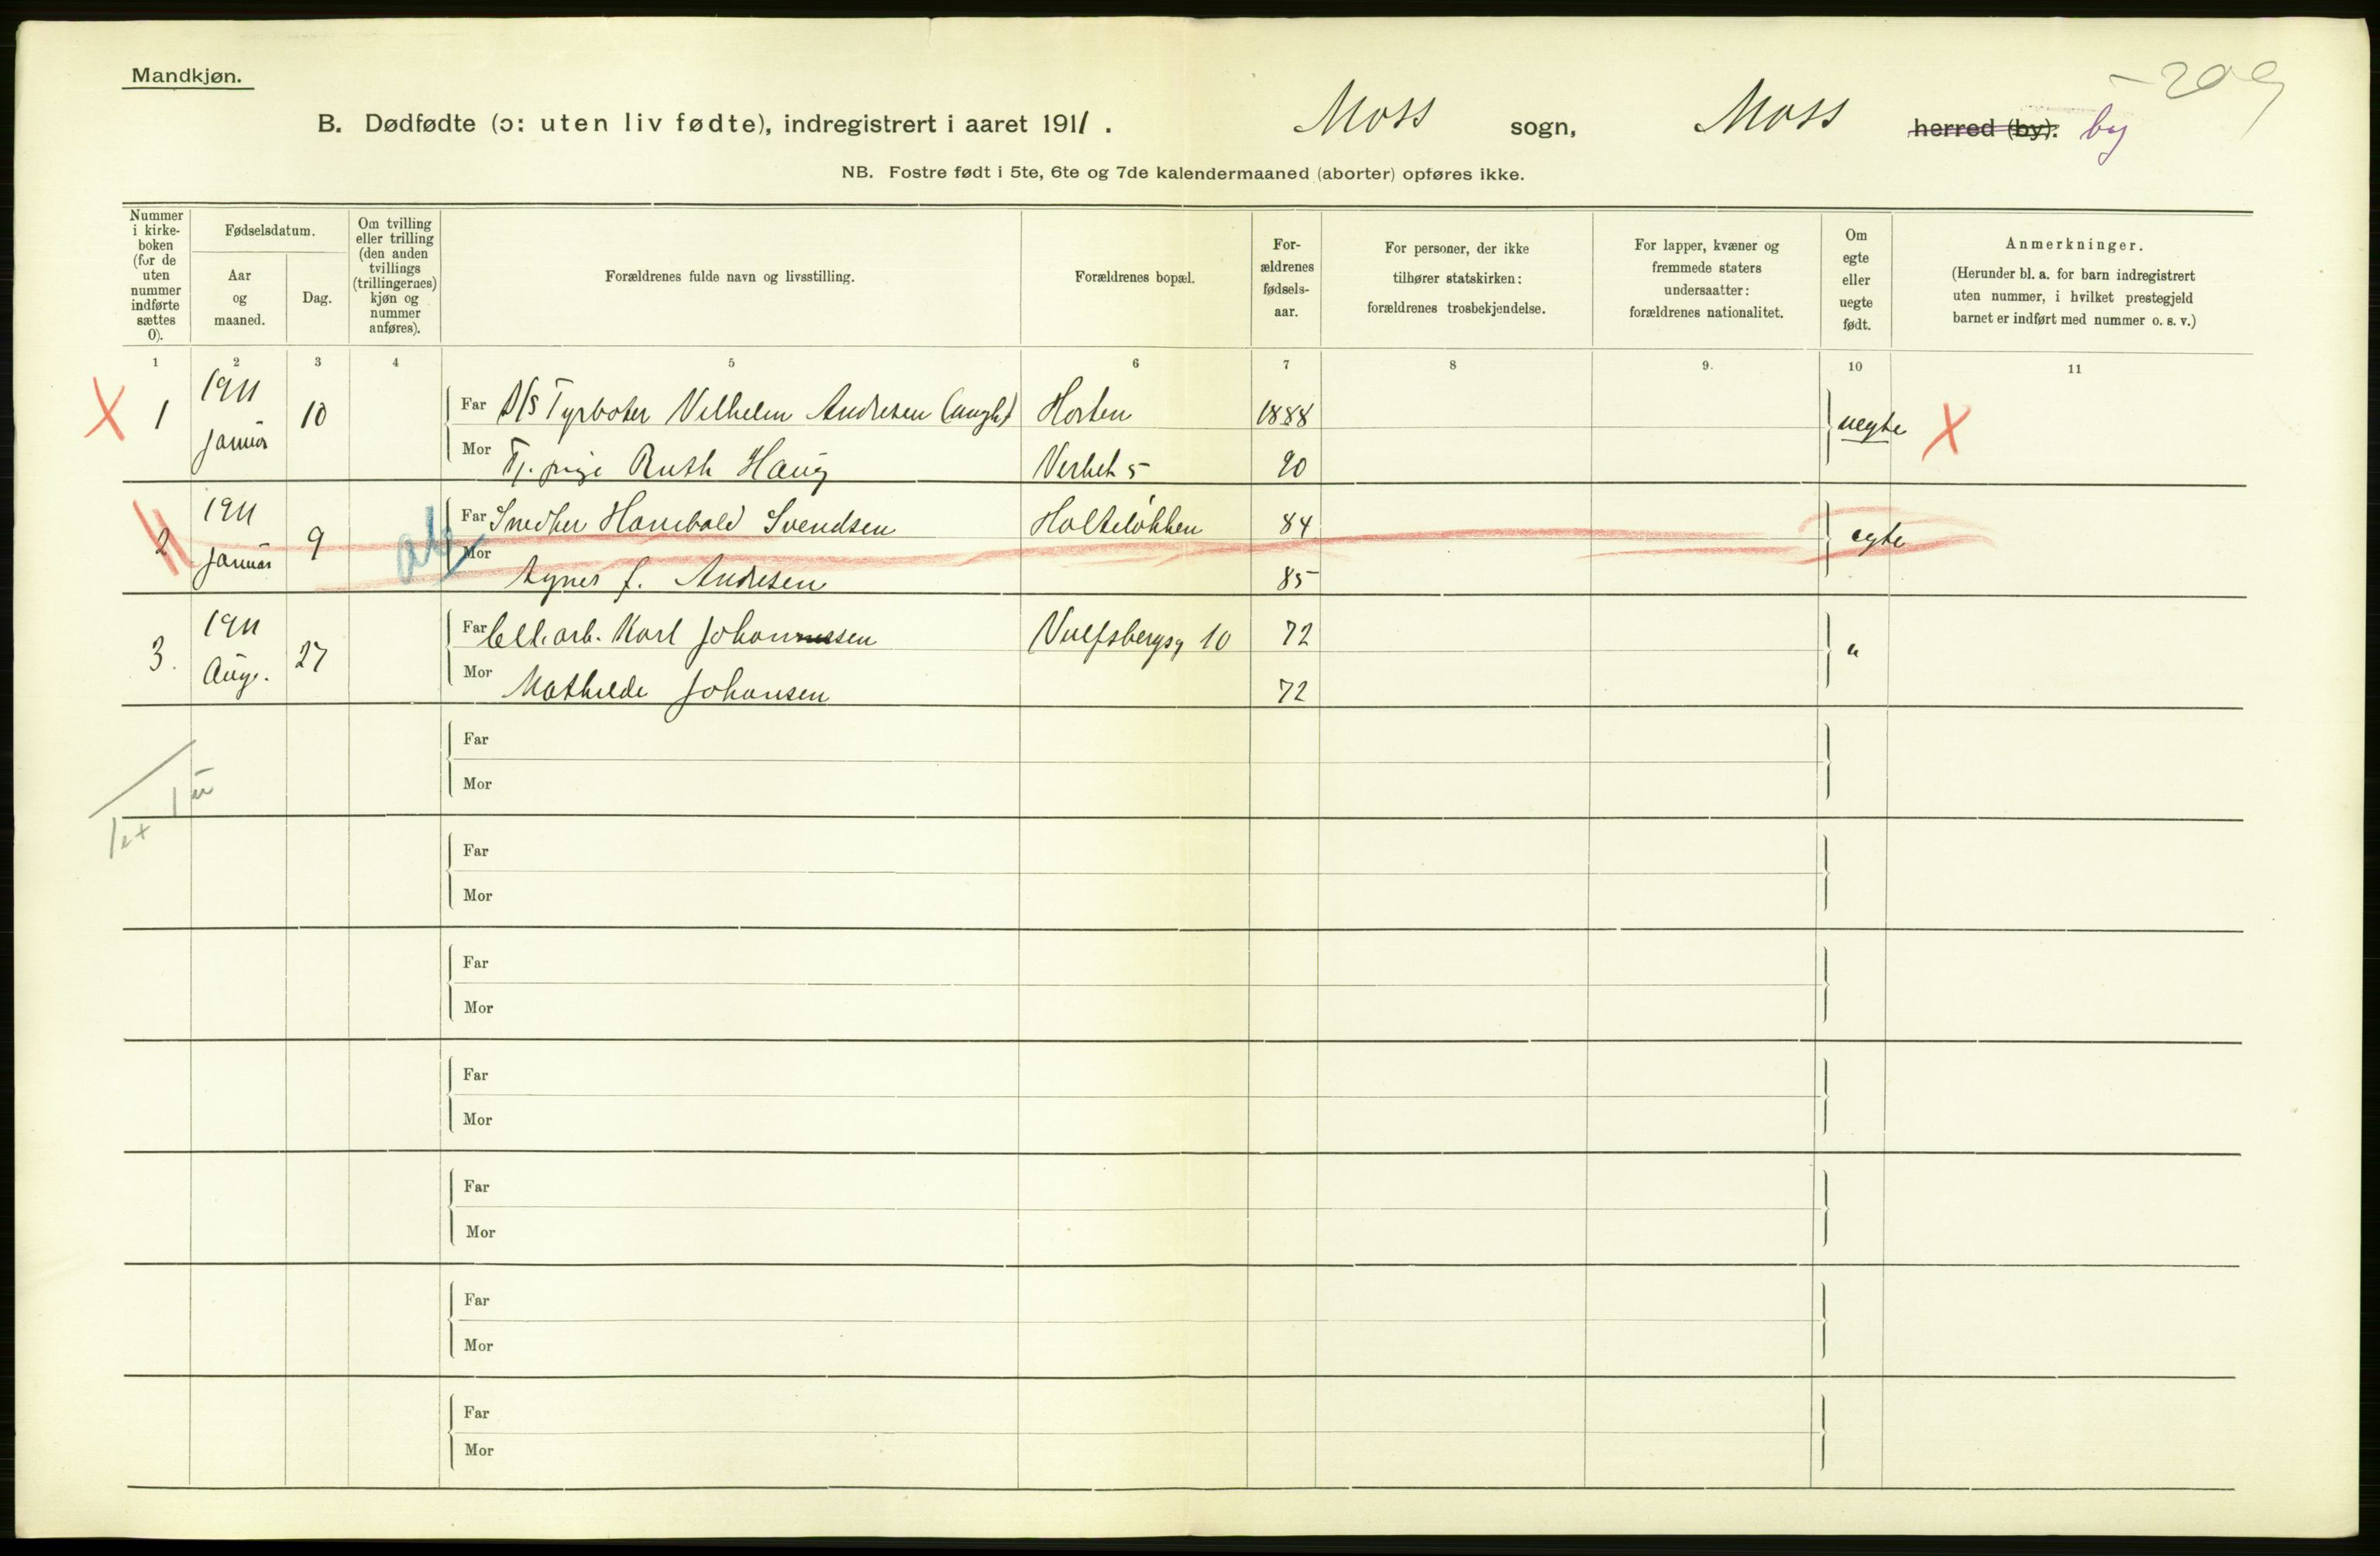 Mandkjøn.
- 209
B. Dødfødte (ɔ: uten liv fødte), indregistrert i aaret 1911. Moss sogn, Moss herred (by). by
NB. Fostre født i 5te, 6te og 7de kalendermaaned (aborter) opføres ikke.
Nummer i kirke- boken (for de uten nummer indførte sættes 0).
Fødselsdatum.
Aar og maaned.
Dag.
Om tvilling eller trilling (den anden tvillings (trillingernes) kjøn og nummer anføres).
Forældrenes fulde navn og livsstilling.
Forældrenes bopæl.
For- ældrenes fødsels- aar.
For personer, der ikke tilhører statskirken: forældrenes trosbekjendelse.
For lapper, kvæner og fremmede staters undersaatter: forældrenes nationalitet.
Om egte eller uegte født.
Anmerkninger.
(Herunder bl. a. for barn indregistrert uten nummer, i hvilket prestegjeld barnet er indført med nummer o. s. v.)
1 2 3 4 5 6 7 8 9. 10 11
1 1911 Januar 10 Far Vilhelm Andresen (angh) Horten 1888 uegte
Mor Tj. pige Ruth Haug Verket 5 90
2 1911 Januar 9 Far Snedker Hambald Svendsen Holteløkken 84 egte
Mor Agnes f. Andresen 85
3. 1911 Aug. 27 Far Cell. arb. Karl Johannessen Vulfsbergsg 10 72 "
Mor Mathilde Johansen 72
Far
Mor
Far
Mor
Far
Mor
Far
Mor
Far
Mor
Far
Mor
Far
Mor